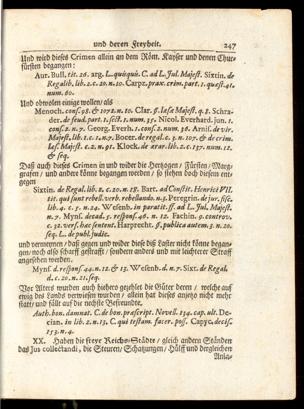 und deren Freyheit. 247
Und wird dieses Crimen allein an dem Röm. Kayser und denen Chur-
fürsten begangen:
Aur. Bull. tit. 26. arg. L. quisquis. C. ad L. Jul. Majest. Sixtin. de
Regalib. lib. 2. c. 20. n. 10. Carpz. prax. crim. part. 1. quæst. 41.
num. 60.
Und obwolen einige wollen/ als
Menoch. cons. 98. & 1072. n. 10. Clar. §. læsæ Majest. q. 8. Schra-
der. de feud. part. 1. sect. 1. num. 35. Nicol. Everhard. jun. 1.
cons. 2. n. 7. Georg. Everh. 1. cons. 2. num. 36. Arnis. de vit.
Majest. lib. 1. c. 1. n. 7. Bocer. de regal. c. 3. n. 107. & de crim.
læs. Majest. c. 2. n. 91. Klock. de ærar. lib. 2. c. 157. num. 12.
& seq.
Daß auch dieses Crimen in und wider die Hertzogen/ Fürsten/ Marg-
grafen/ und andere könne begangen werden/ so stehen doch diesem ent-
gegen:
Sixtin. de Regal. lib. 2. c. 20. n. 18. Bart. ad Constit. Henrici VII.
tit. qui sunt rebell. verb. rebellando. n. 5. Peregrin. de jur. fisc.
lib. 4. c. 5. n. 24. Wesenb. in paratit. ff. ad L. Jul. Majest.
n. 7. Myns. decad. 5. respons. 46. n. 12. Fachin. 9. controv.
c. 12. vers. hac sentent. Harprecht. §. publica autem. 3. n. 20.
seq. L. de publ. judic.
und vermeynen/ daß gegen und wider diese diß Laster nicht könne began-
gen/ noch also scharff gestrafft/ sondern anders und mit leichterer Straff
angesehen werden.
Myns. d. respons. 44. n. 12. & 13. Wesenb. d. n. 7. Sixt. de Regal.
d. c. 20. n. 21. seq.
Vor Alters wurden auch hieher gezehlet die Güter deren/ welche auf
ewig des Lands verwiesen wurden/ allein hat dieses anjetzo nicht mehr
statt/ und fällt auf die nechste Befreundte.
Auth. bon. damnat. C. de bon. præscript. Novell. 134. cap. ult. De-
cian. in lib. 2. n. 13. C. qui testam. facer. poss. Capyc. decis.
153. n. 4.
XX. Haben die freye Reichs-Städte/ gleich andern Ständen
das Jus collectandi, die Steuren/ Schatzungen/ Hülff und dergleichen
Anla-